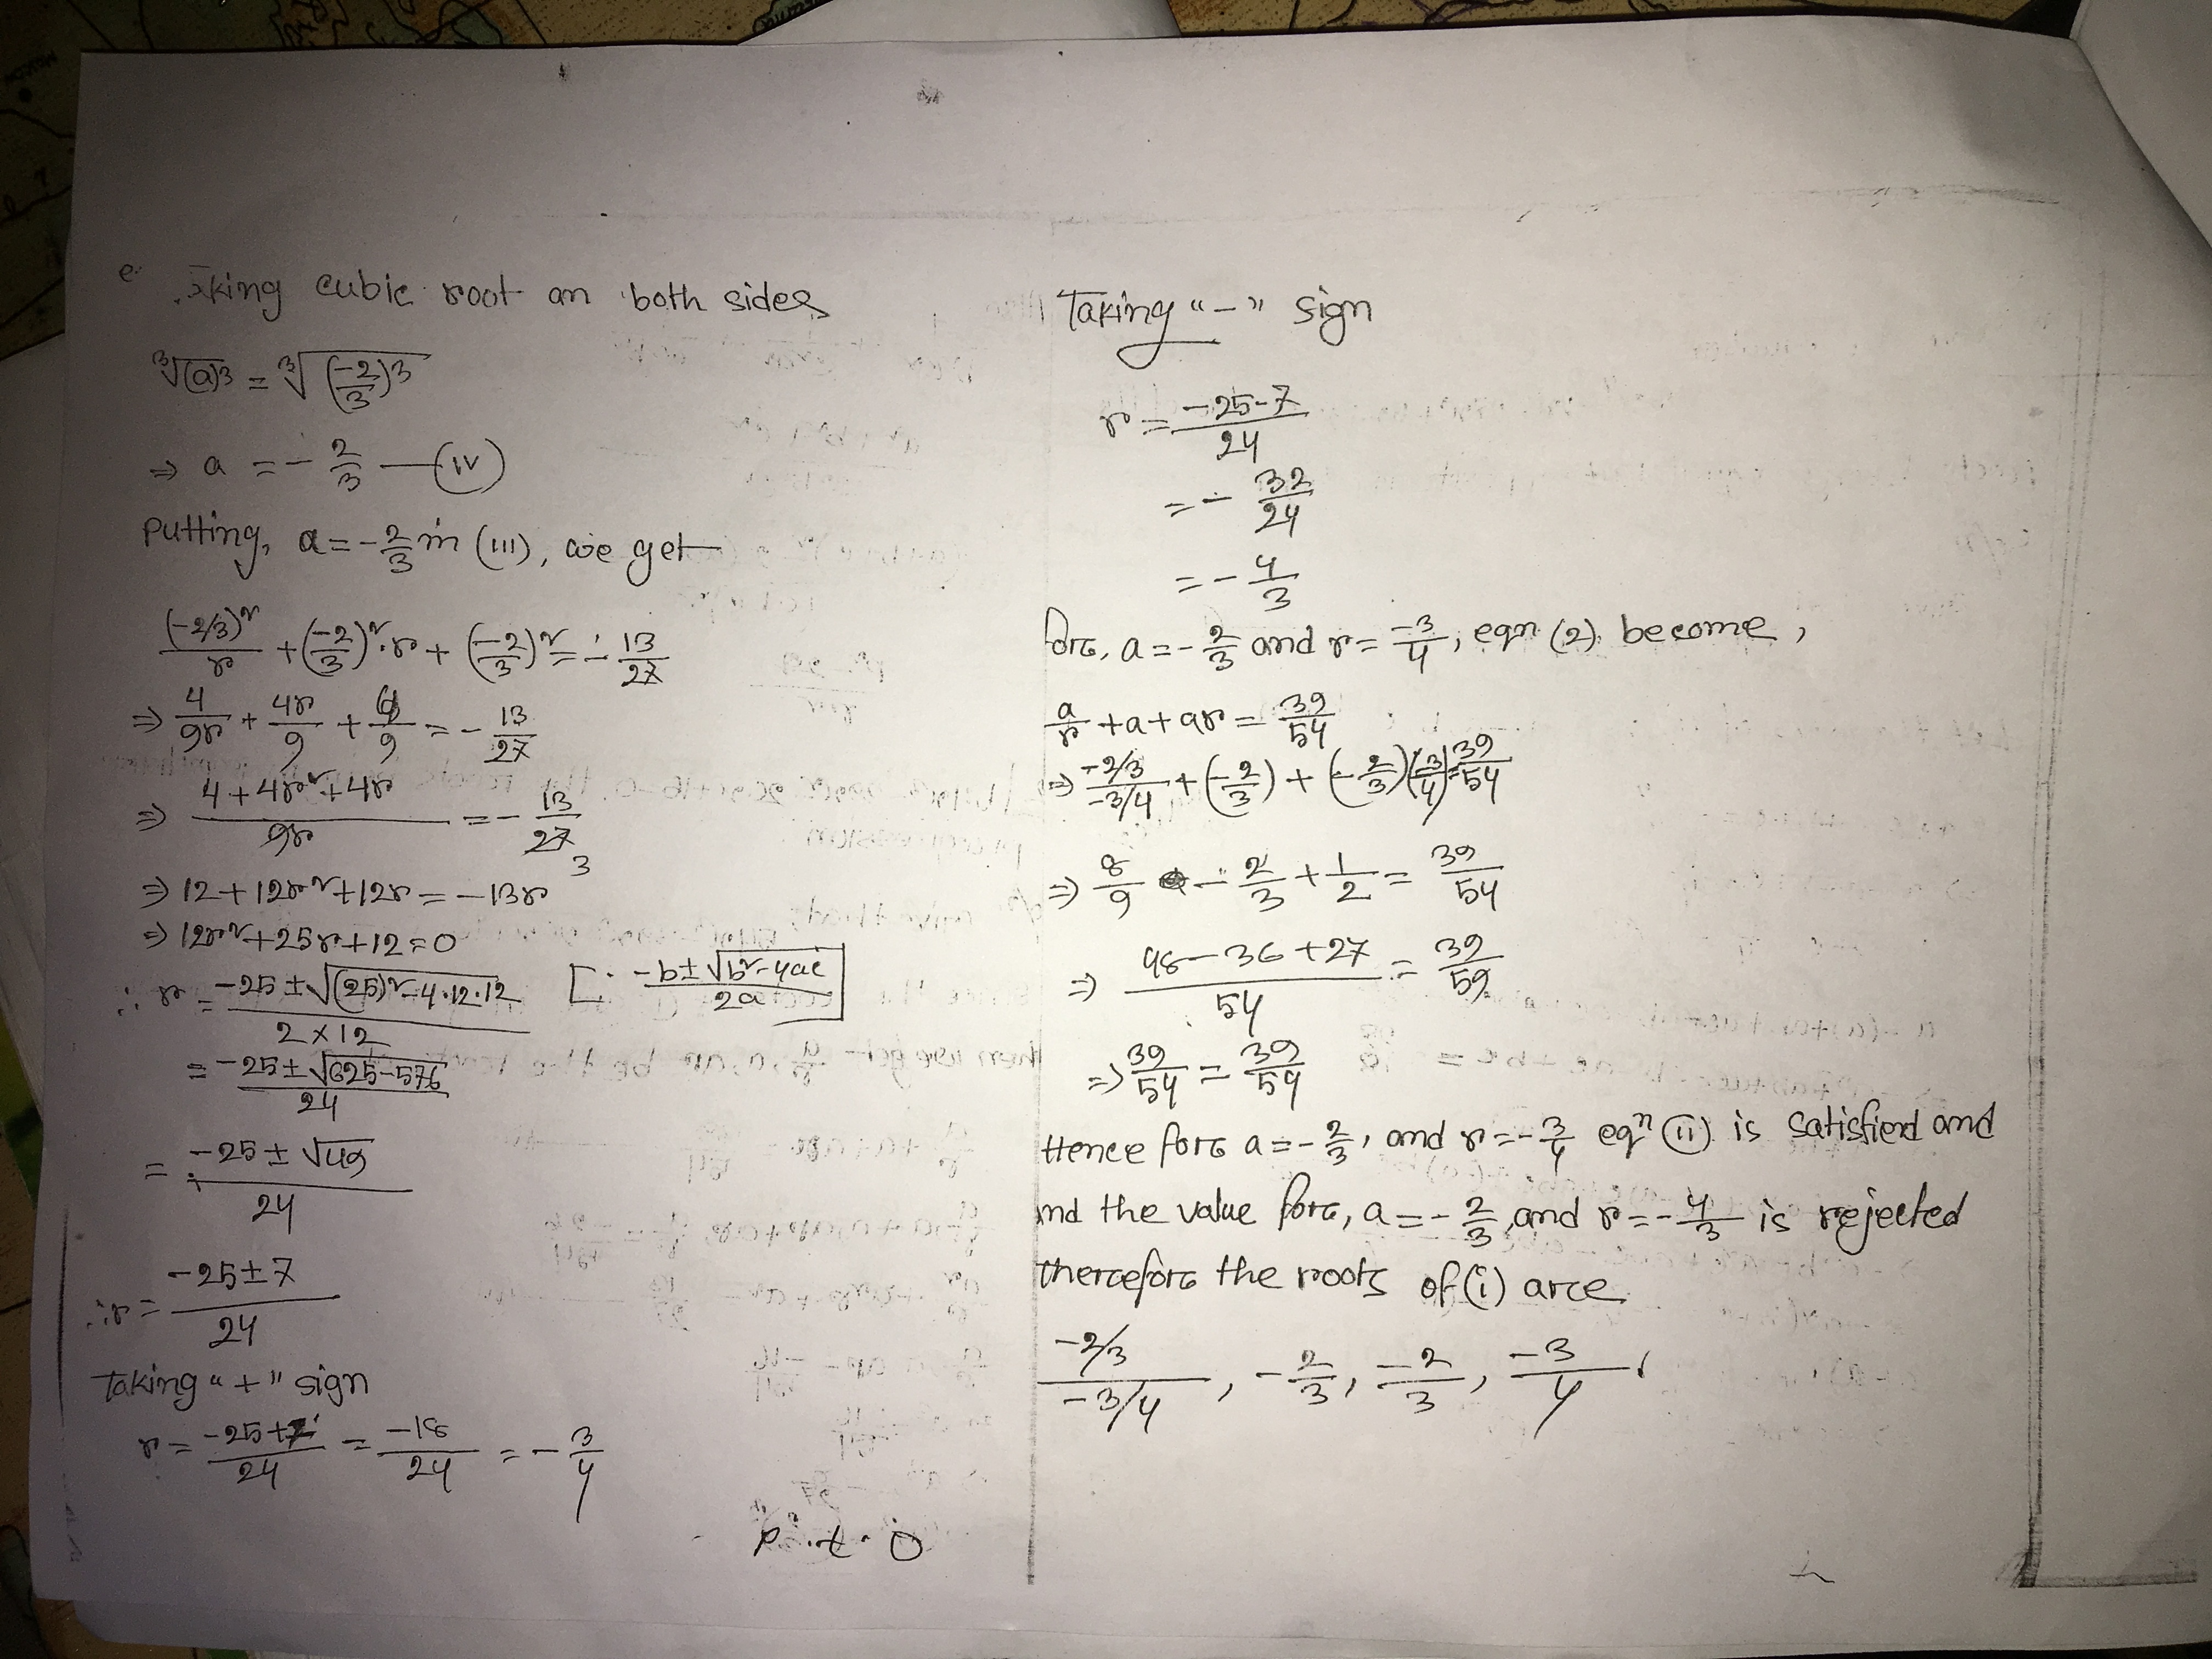 Taking cubic root on both sides
∛(a)3 = ∛(-2/3)3
⇒ a = - 2/3 — (IV)
Putting, a = - 2/3 in (III), we get
(-2/3)²/r + (-2/3)²·r + (-2/3)² = - 13/27
⇒ 4/9r + 4r/9 + 4/9 = - 13/27
⇒ 4+4r²+4r / 9r = - 13/27 3
⇒ 12+12r²+12r = -13r
⇒ 12r²+25r+12=0
∴ r = -25 ± √(25)²-4·12·12 / 2×12 [∵ -b±√b²-4ac / 2a]
= -25 ± √625-576 / 24
= -25 ± √49 / 24
∴ r = -25±7 / 24
Taking "+" sign
r = -25+7 / 24 = -18/24 = - 3/4
P.T.O
Taking "-" sign
r = -25-7 / 24
= - 32/24
= - 4/3
for, a = - 2/3 and r = -3/4, eqn (2) become,
a/r + a + ar = 39/54
⇒ -2/3 / -3/4 + (-2/3) + (-2/3)(-3/4) = 39/54
⇒ 8/9 - 2/3 + 1/2 = 39/54
⇒ 48-36+27 / 54 = 39/54
⇒ 39/54 = 39/54
Hence for a = - 2/3, and r = - 3/4 eqⁿ (ii) is satisfied and
and the value for, a = - 2/3, and r = - 4/3 is rejected
therefore the roots of (i) are
-2/3 / -3/4, - 2/3, -2/3, -3/4